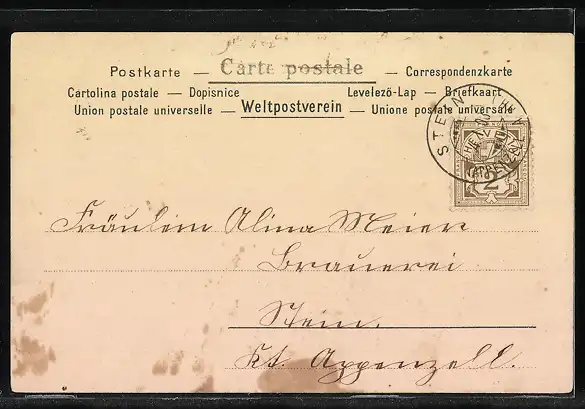 Postkarte — Carte postale — Correspondenzkarte
Cartolina postale — Dopisnice Levelező-Lap — Briefkaart
Union postale universelle — Weltpostverein — Unione postale universale
STEIN
(APPENZELL)
2
Fräulein Alina Meier
Brauerei
Stein.
Kt. Appenzell.